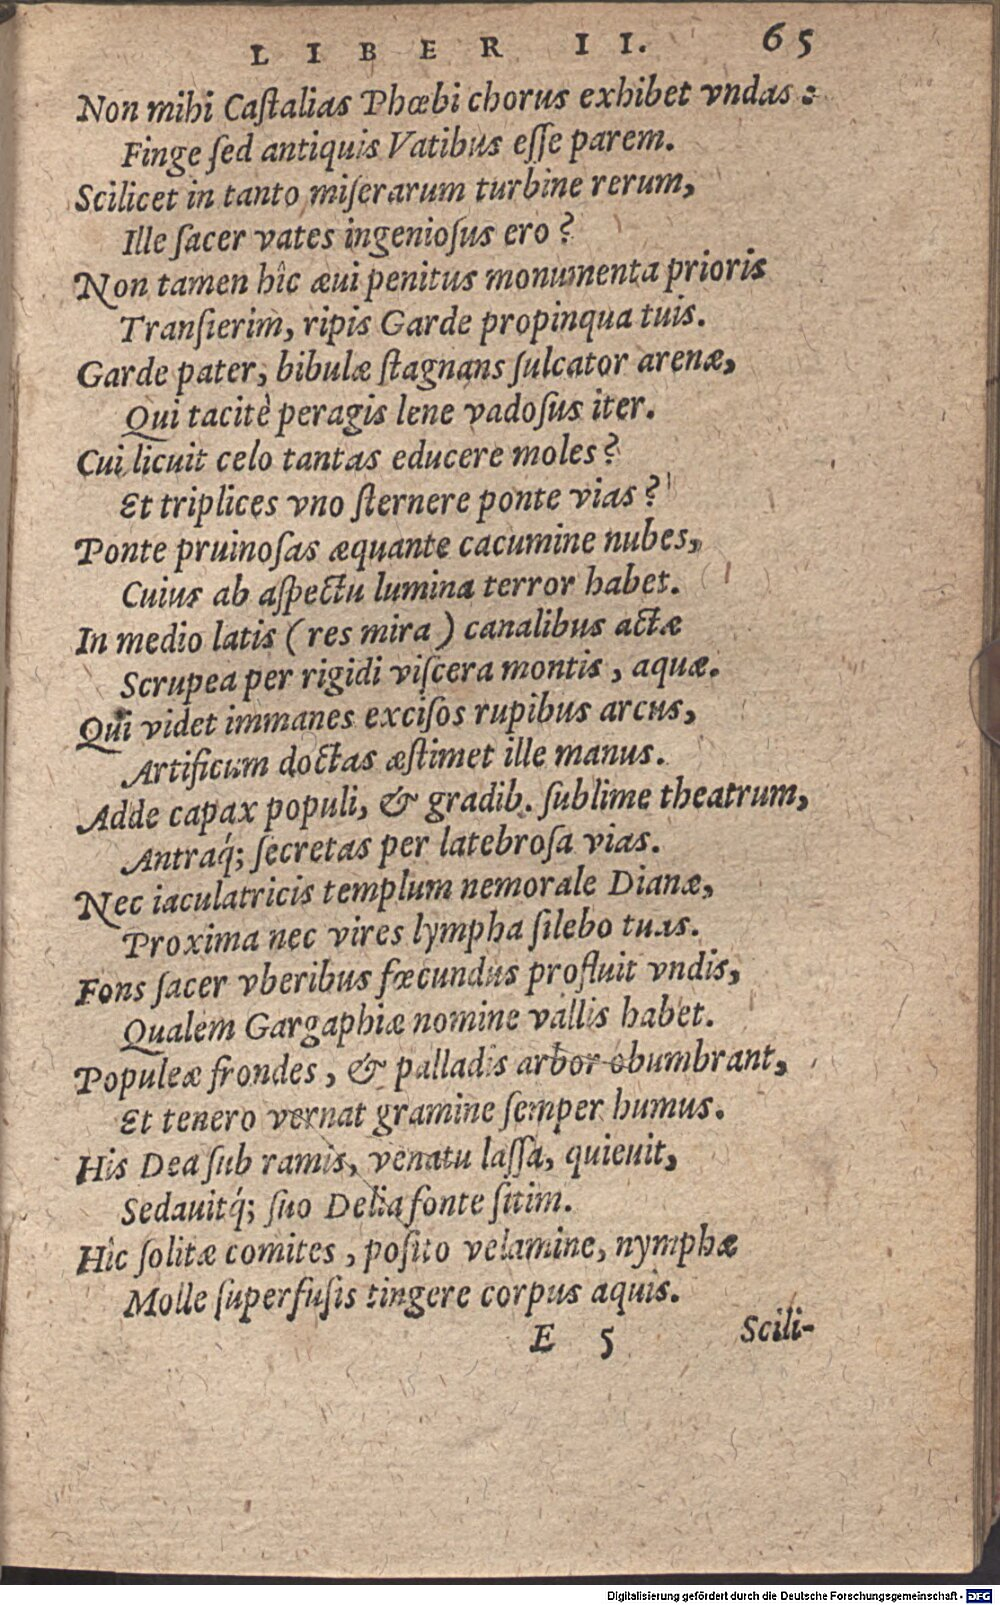 LIBER II. 65
Non mihi Caſtalias Phœbi chorus exhibet vndas:
Finge ſed antiquis Vatibus eſſe parem.
Scilicet in tanto miſerarum turbine rerum,
Ille ſacer vates ingenioſus ero?
Non tamen hîc æui penitus monumenta prioris
Tranſierim, ripis Garde propinqua tuis.
Garde pater, bibulæ ſtagnans ſulcator arenæ,
Qui tacitè peragis lene vadoſus iter.
Cui licuit celo tantas educere moles?
Et triplices vno ſternere ponte vias?
Ponte pruinoſas æquante cacumine nubes,
Cuius ab aſpectu lumina terror habet.
In medio latis (res mira) canalibus actæ
Scrupea per rigidi viſcera montis, aquæ.
Qui videt immanes exciſos rupibus arcus,
Artificum doctas æſtimet ille manus.
Adde capax populi, & gradib. ſublime theatrum,
Antraq́; ſecretas per latebroſa vias.
Nec iaculatricis templum nemorale Dianæ,
Proxima nec vires lympha ſilebo tuas.
Fons ſacer vberibus fœcundus profluit vndis,
Qualem Gargaphiæ nomine vallis habet.
Populeæ frondes, & palladis arbor obumbrant,
Et tenero vernat gramine ſemper humus.
His Dea ſub ramis, venatu laſſa, quieuit,
Sedauitq́; ſuo Delia fonte ſitim.
Hîc ſolitæ comites, poſito velamine, nymphæ
Molle ſuperfuſis tingere corpus aquis.
E 5 Scili-
Digitalisierung gefördert durch die Deutsche Forschungsgemeinschaft - DFG